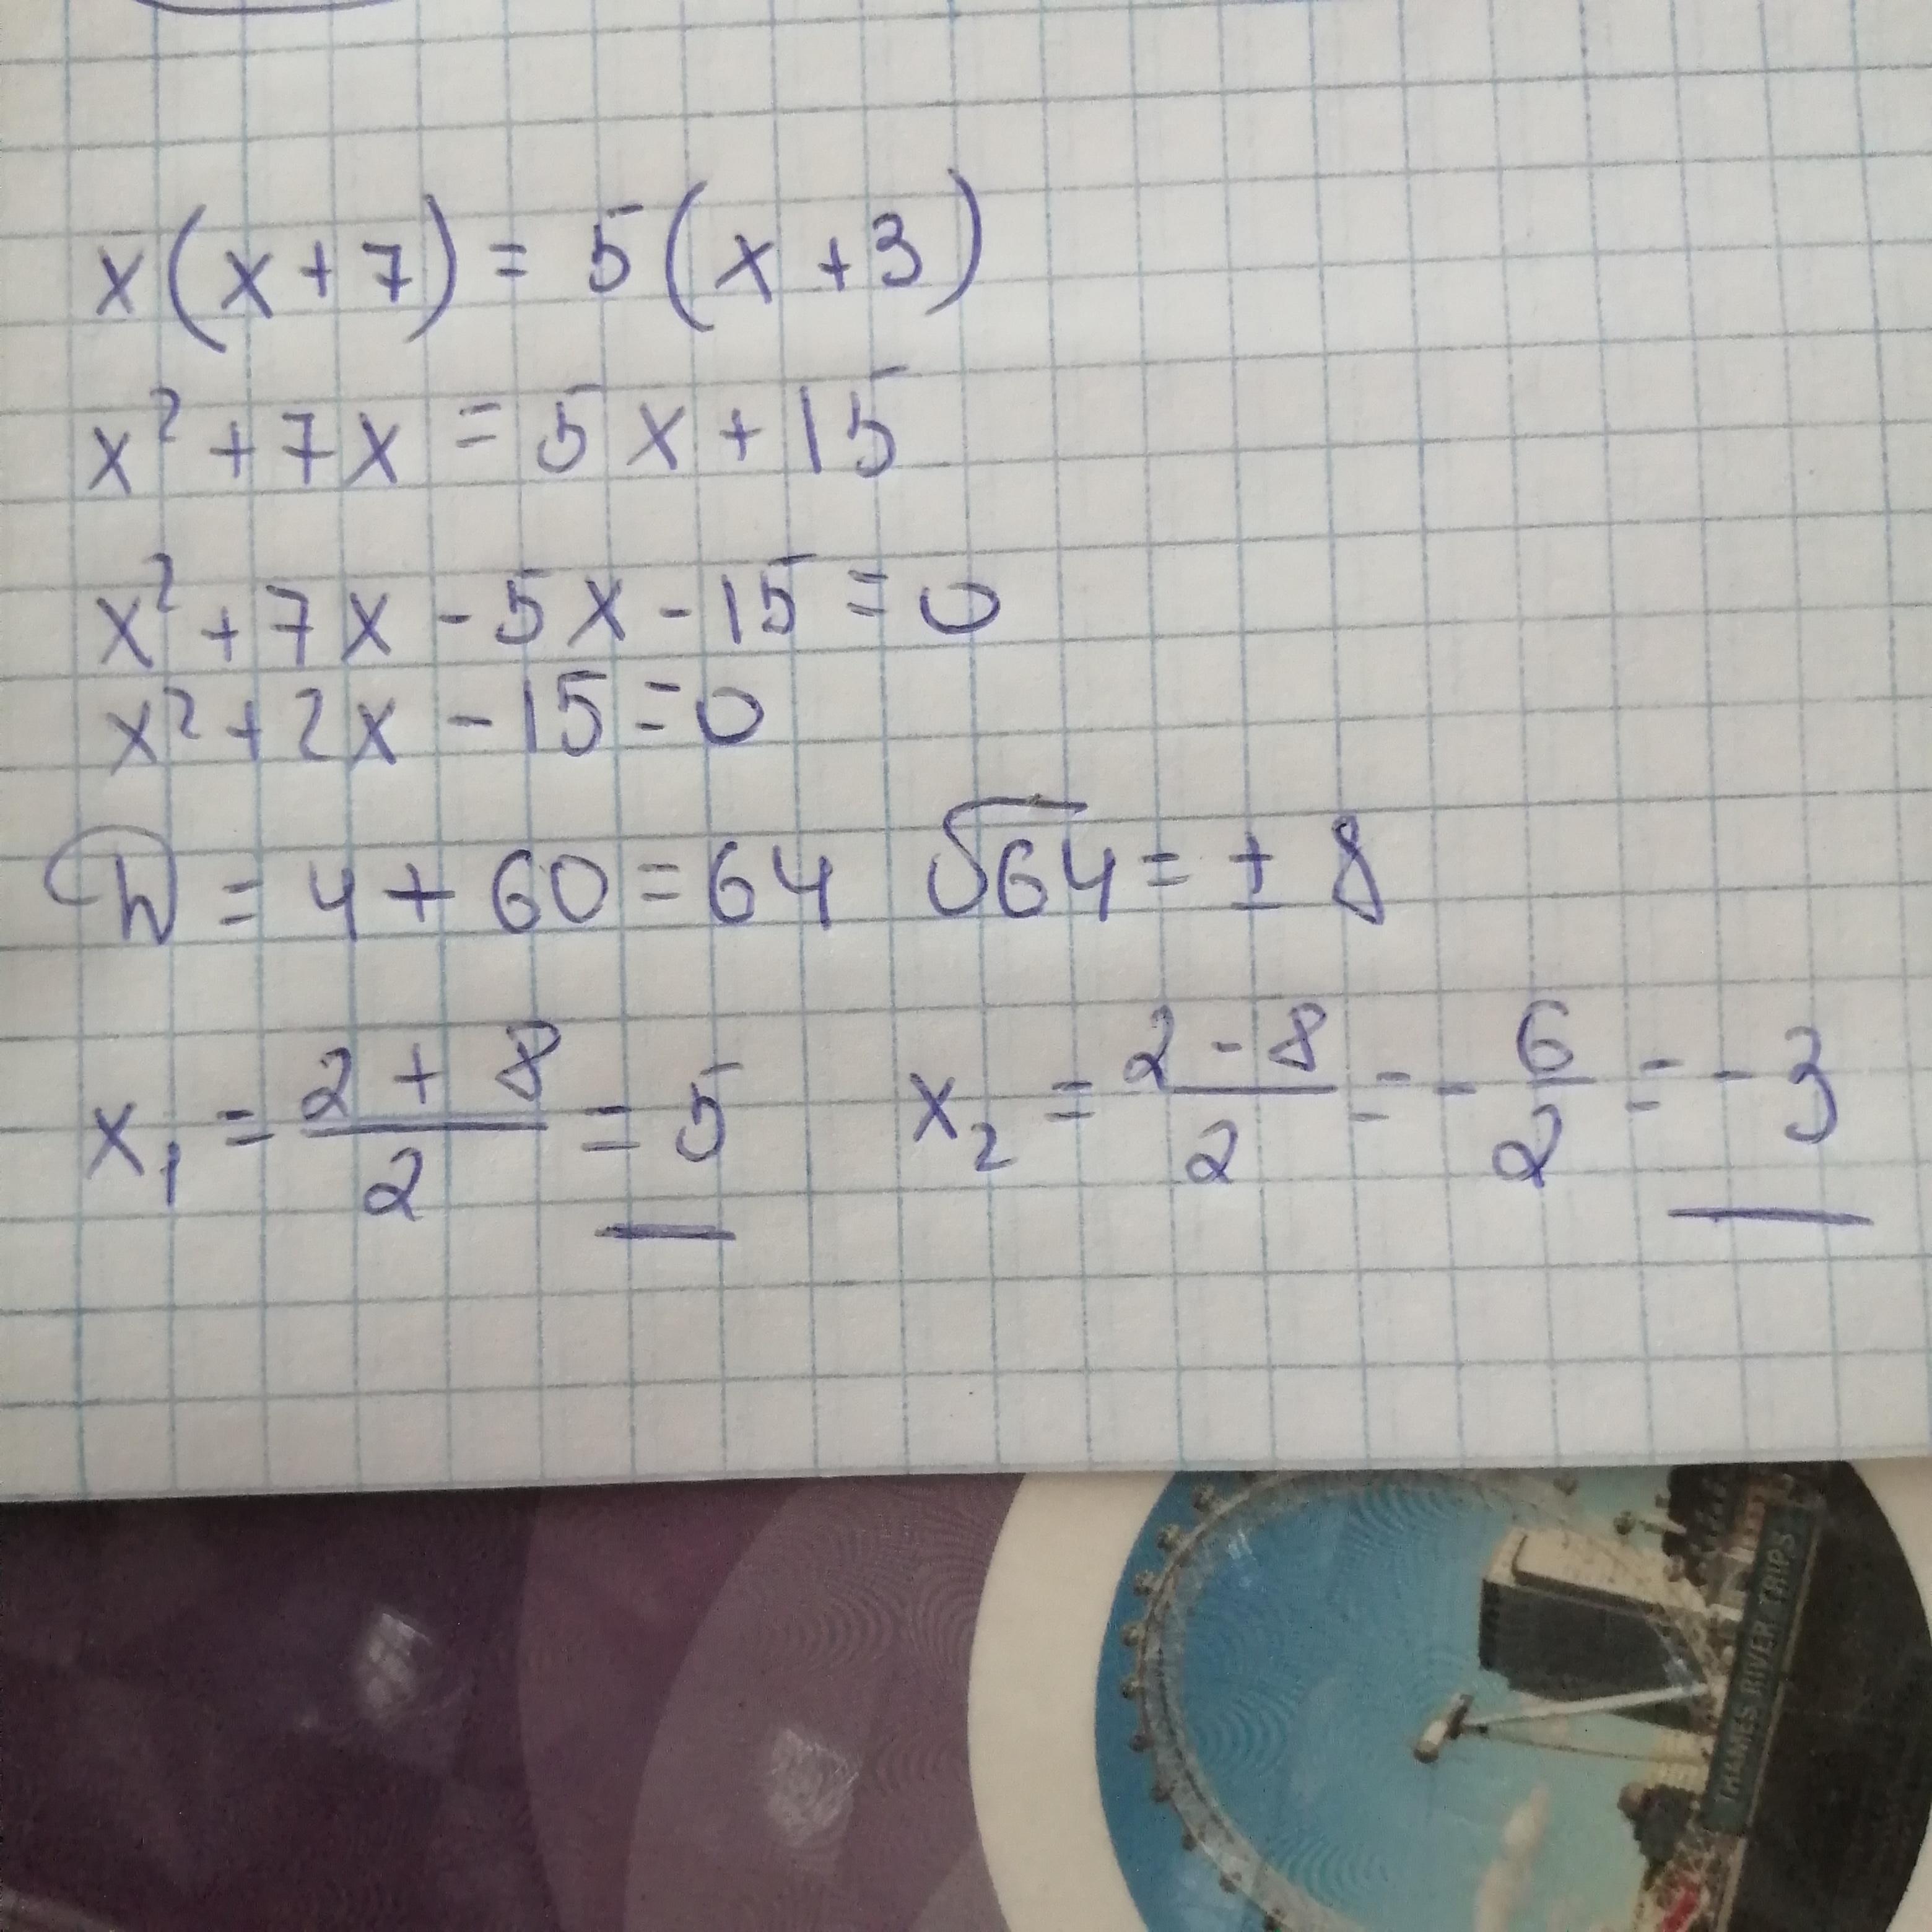 x(x+7) = 5(x+3)
x² + 7x = 5x + 15
x² + 7x - 5x - 15 = 0
x² + 2x - 15 = 0
D = 4 + 60 = 64 √64 = ± 8
x₁ = (2 + 8)/2 = 5 x₂ = (2 - 8)/2 = - 6/2 = - 3
THAMES RIVER TRIPS